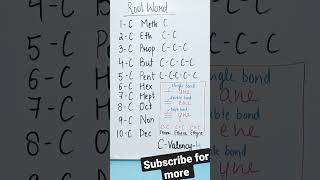 Root Word
1-C Meth C
2-C Eth C-C
3-C Prop C-C-C
4-C But C-C-C-C
5-C Pent C-C-C-C-C
6-C Hex
7-C Hept
8-C Oct
9-C Non
10-C Dec
single bond
ane
double bond
ene
triple bond
yne
C-C C=C C≡C
Ethane Ethene Ethyne
C-Valency-4
5-C
6-C
7-C
8-C
single bond
ane
ene
yne
Subscribe for
more